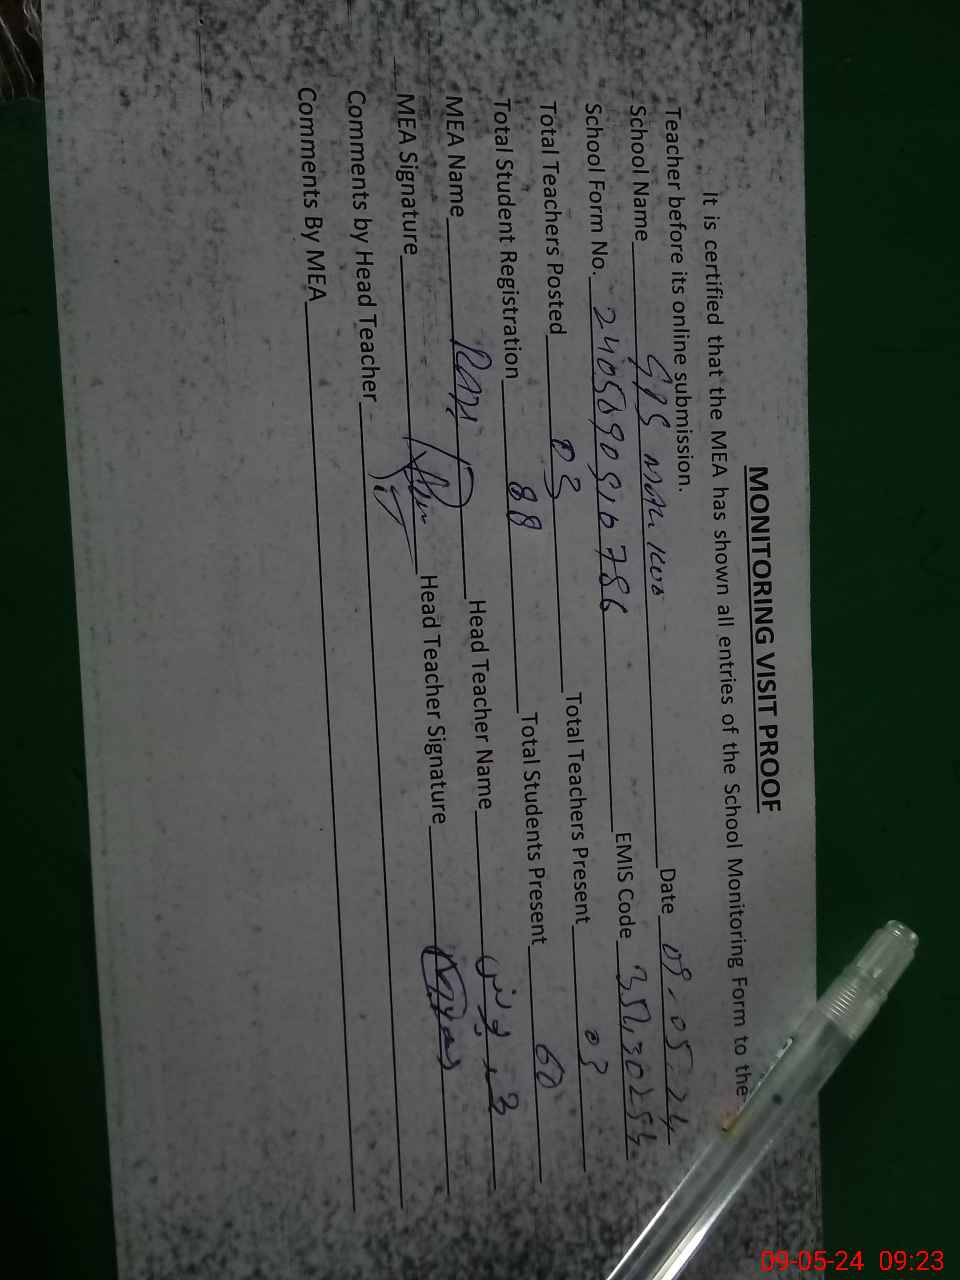 MONITORING VISIT PROOF
It is certified that the MEA has shown all entries of the School Monitoring Form to the
Teacher before its online submission.
School Name GPS Date 09.05.24
School Form No. 24056909510786 EMIS Code
Total Teachers Posted 03 Total Teachers Present 03
Total Student Registration 88 Total Students Present 60
MEA Name Head Teacher Name
MEA Signature Head Teacher Signature
Comments by Head Teacher
Comments By MEA
09-05-24 09:23